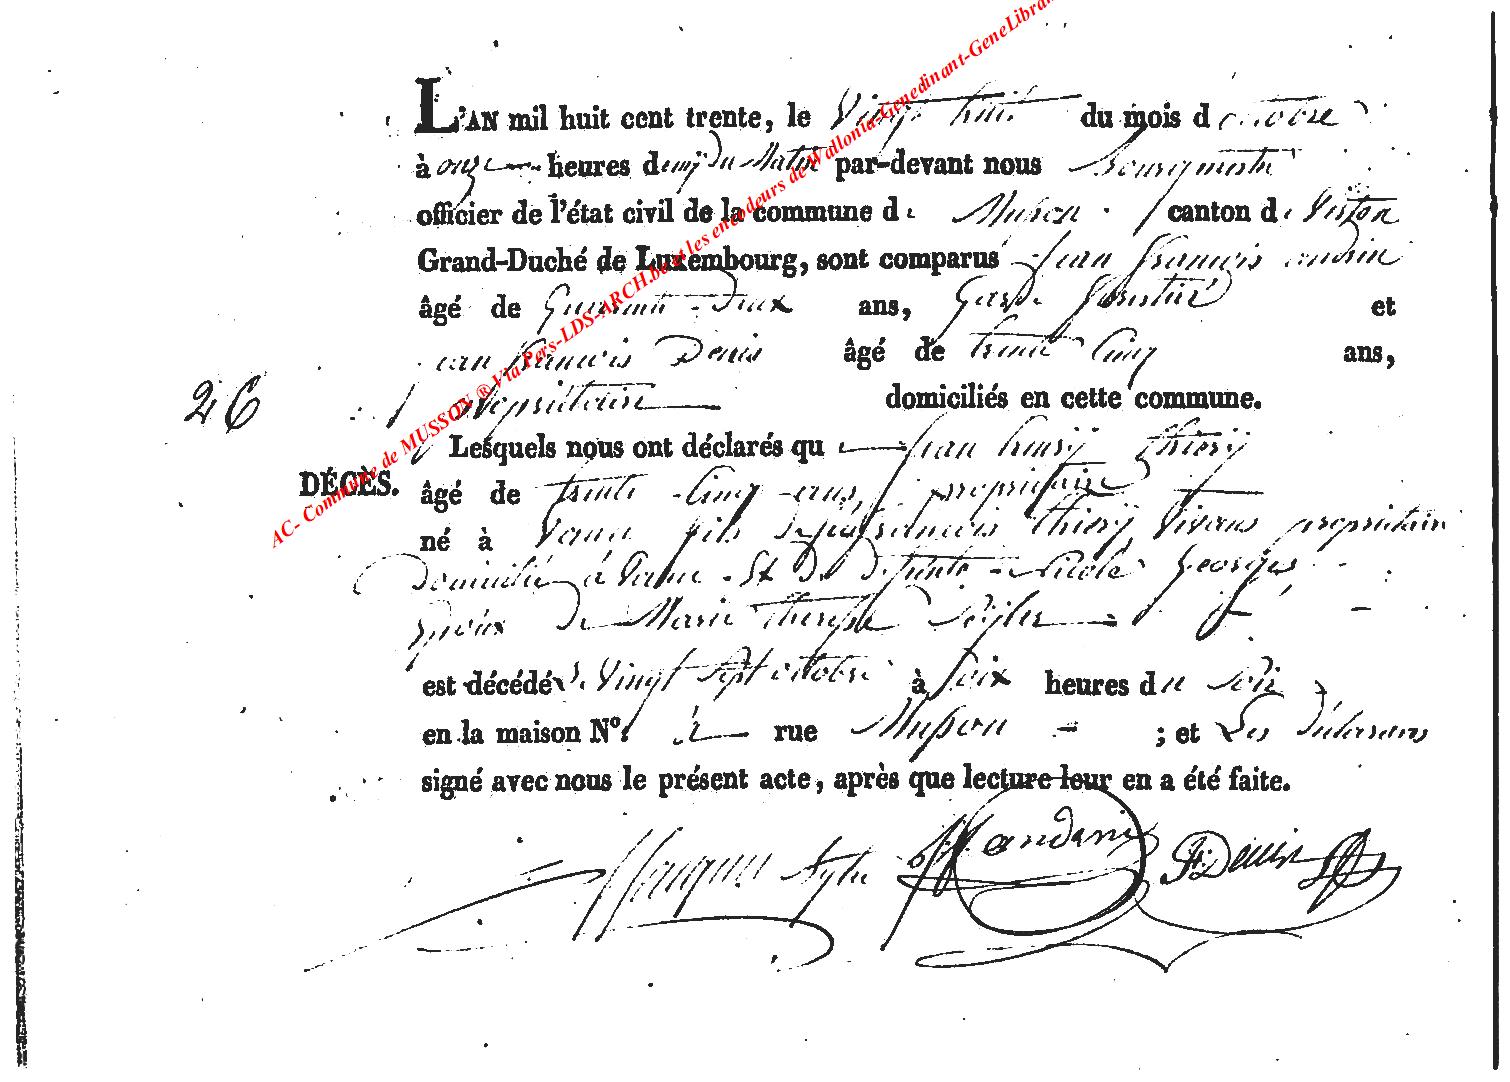 L'AN mil huit cent trente, le Vingt huit du mois d'octobre
à onze heures demy du Matin par-devant nous Bourgmestre
officier de l'état civil de la commune de Musson canton de Virton
Grand-Duché de Luxembourg, sont comparus Jean François
âgé de Quarante Deux ans, Garde forestier et
Jean francois Denis âgé de trente Cinq ans,
26
propriétaire domiciliés en cette commune.
Lesquels nous ont déclarés que Jean henry thiery
DÉCÈS.
âgé de trente Cinq ans, propriétaire
né à fils de francois thiery Vivans propriétaire
Domicilié à Et De défunte Nicole Georges
Epoux De Marie therese
est décédé le Vingt Sept octobre à Six heures du Soir
en la maison N° 2 rue Musson ; et Les Déclarans
signé avec nous le présent acte, après que lecture leur en a été faite.
JF Denis
AC- Commune de MUSSON ® Via Pers-LDS-ARCH.be et les encodeurs de Wallonia-Genedinant-GeneLibra